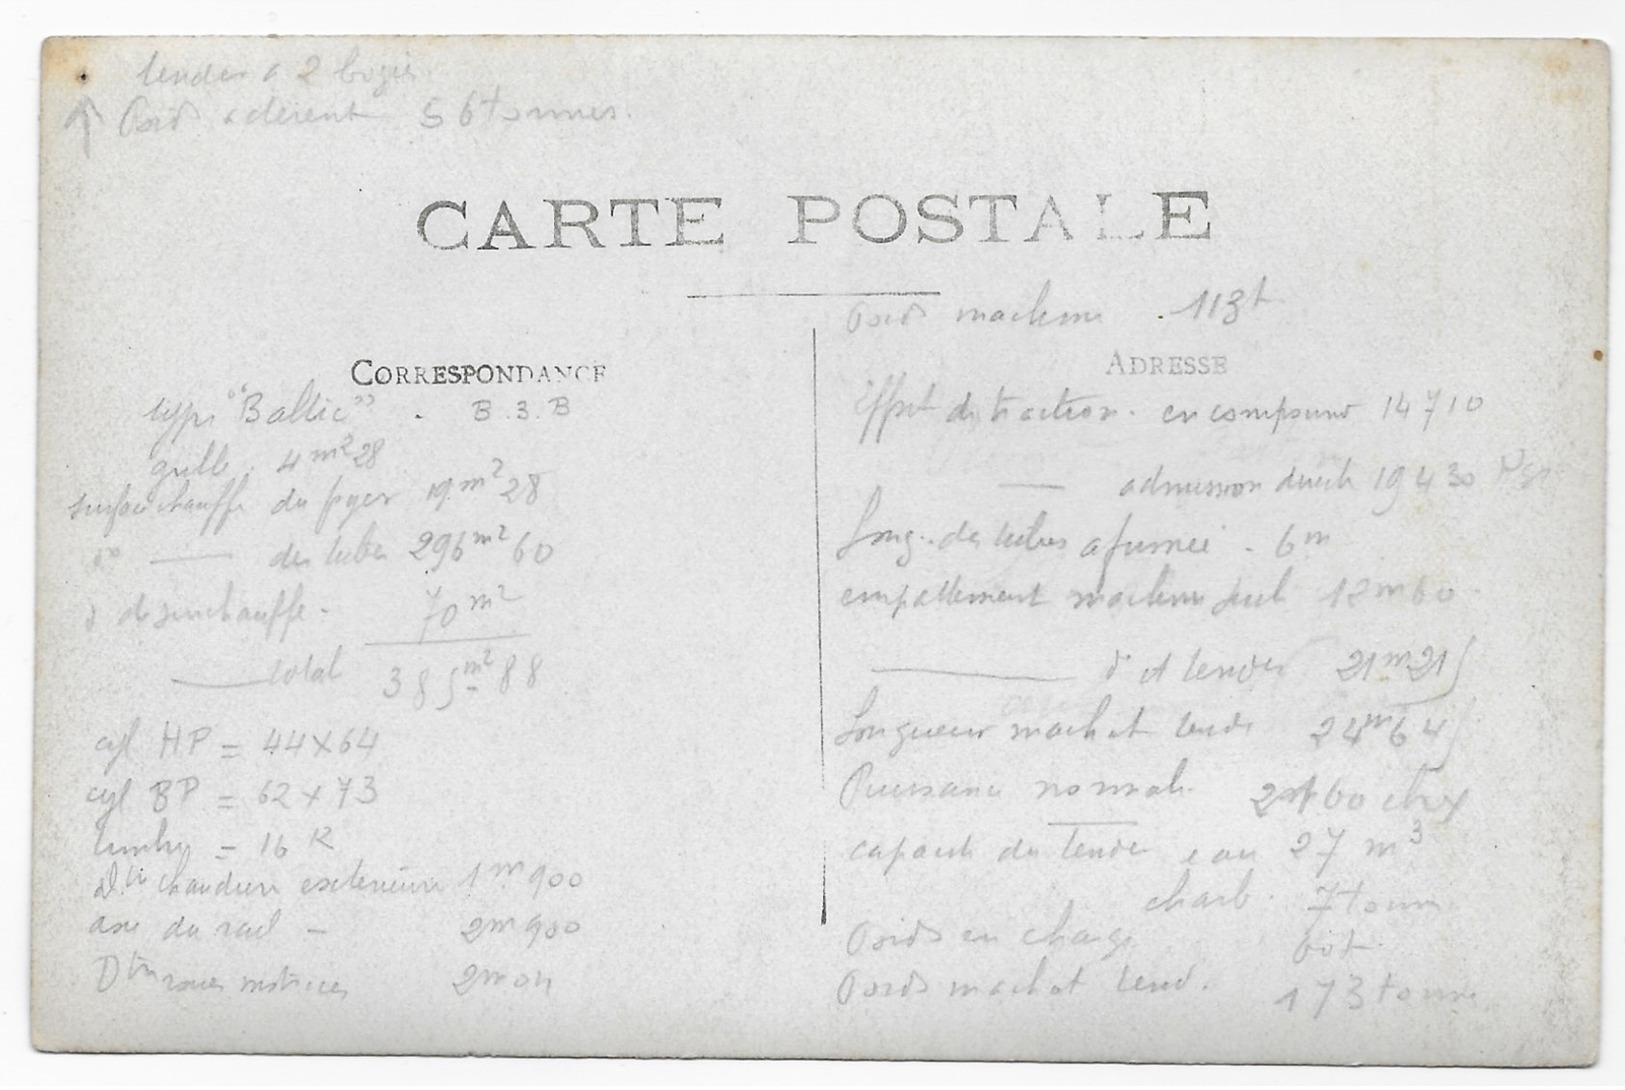 tender a 2 bogies
Poids adérent 56 tonnes.
CARTE POSTALE
Poids machine . 113t
CORRESPONDANCE
ADRESSE
type "Baltic" - B.3.B
grille. 4m²28
surface chauffe du foyer 19m²28
d° — des tubes 296m²60
d de surchauffe - 70m²
— total 385m²88
cyl HP = 44x64
cyl BP = 62x73
timbre = 16 K
Dtre chaudiere exterieure 1m900
axe du rail - 2m900
Dtre roues motrices 2m04
Effort de traction. en compound 14710
— admission directe 19430 Kgs
Long. des tubes a fumée - 6m
empattement machine seul 12m60
— d et tender 21m215
Longueur mach et tender 24m645
Puissance normale. chx
capacite du tender eau 27 m³
charb. 7 tonnes
Poids en charge 60t
Poids mach et tend. 173 tonnes